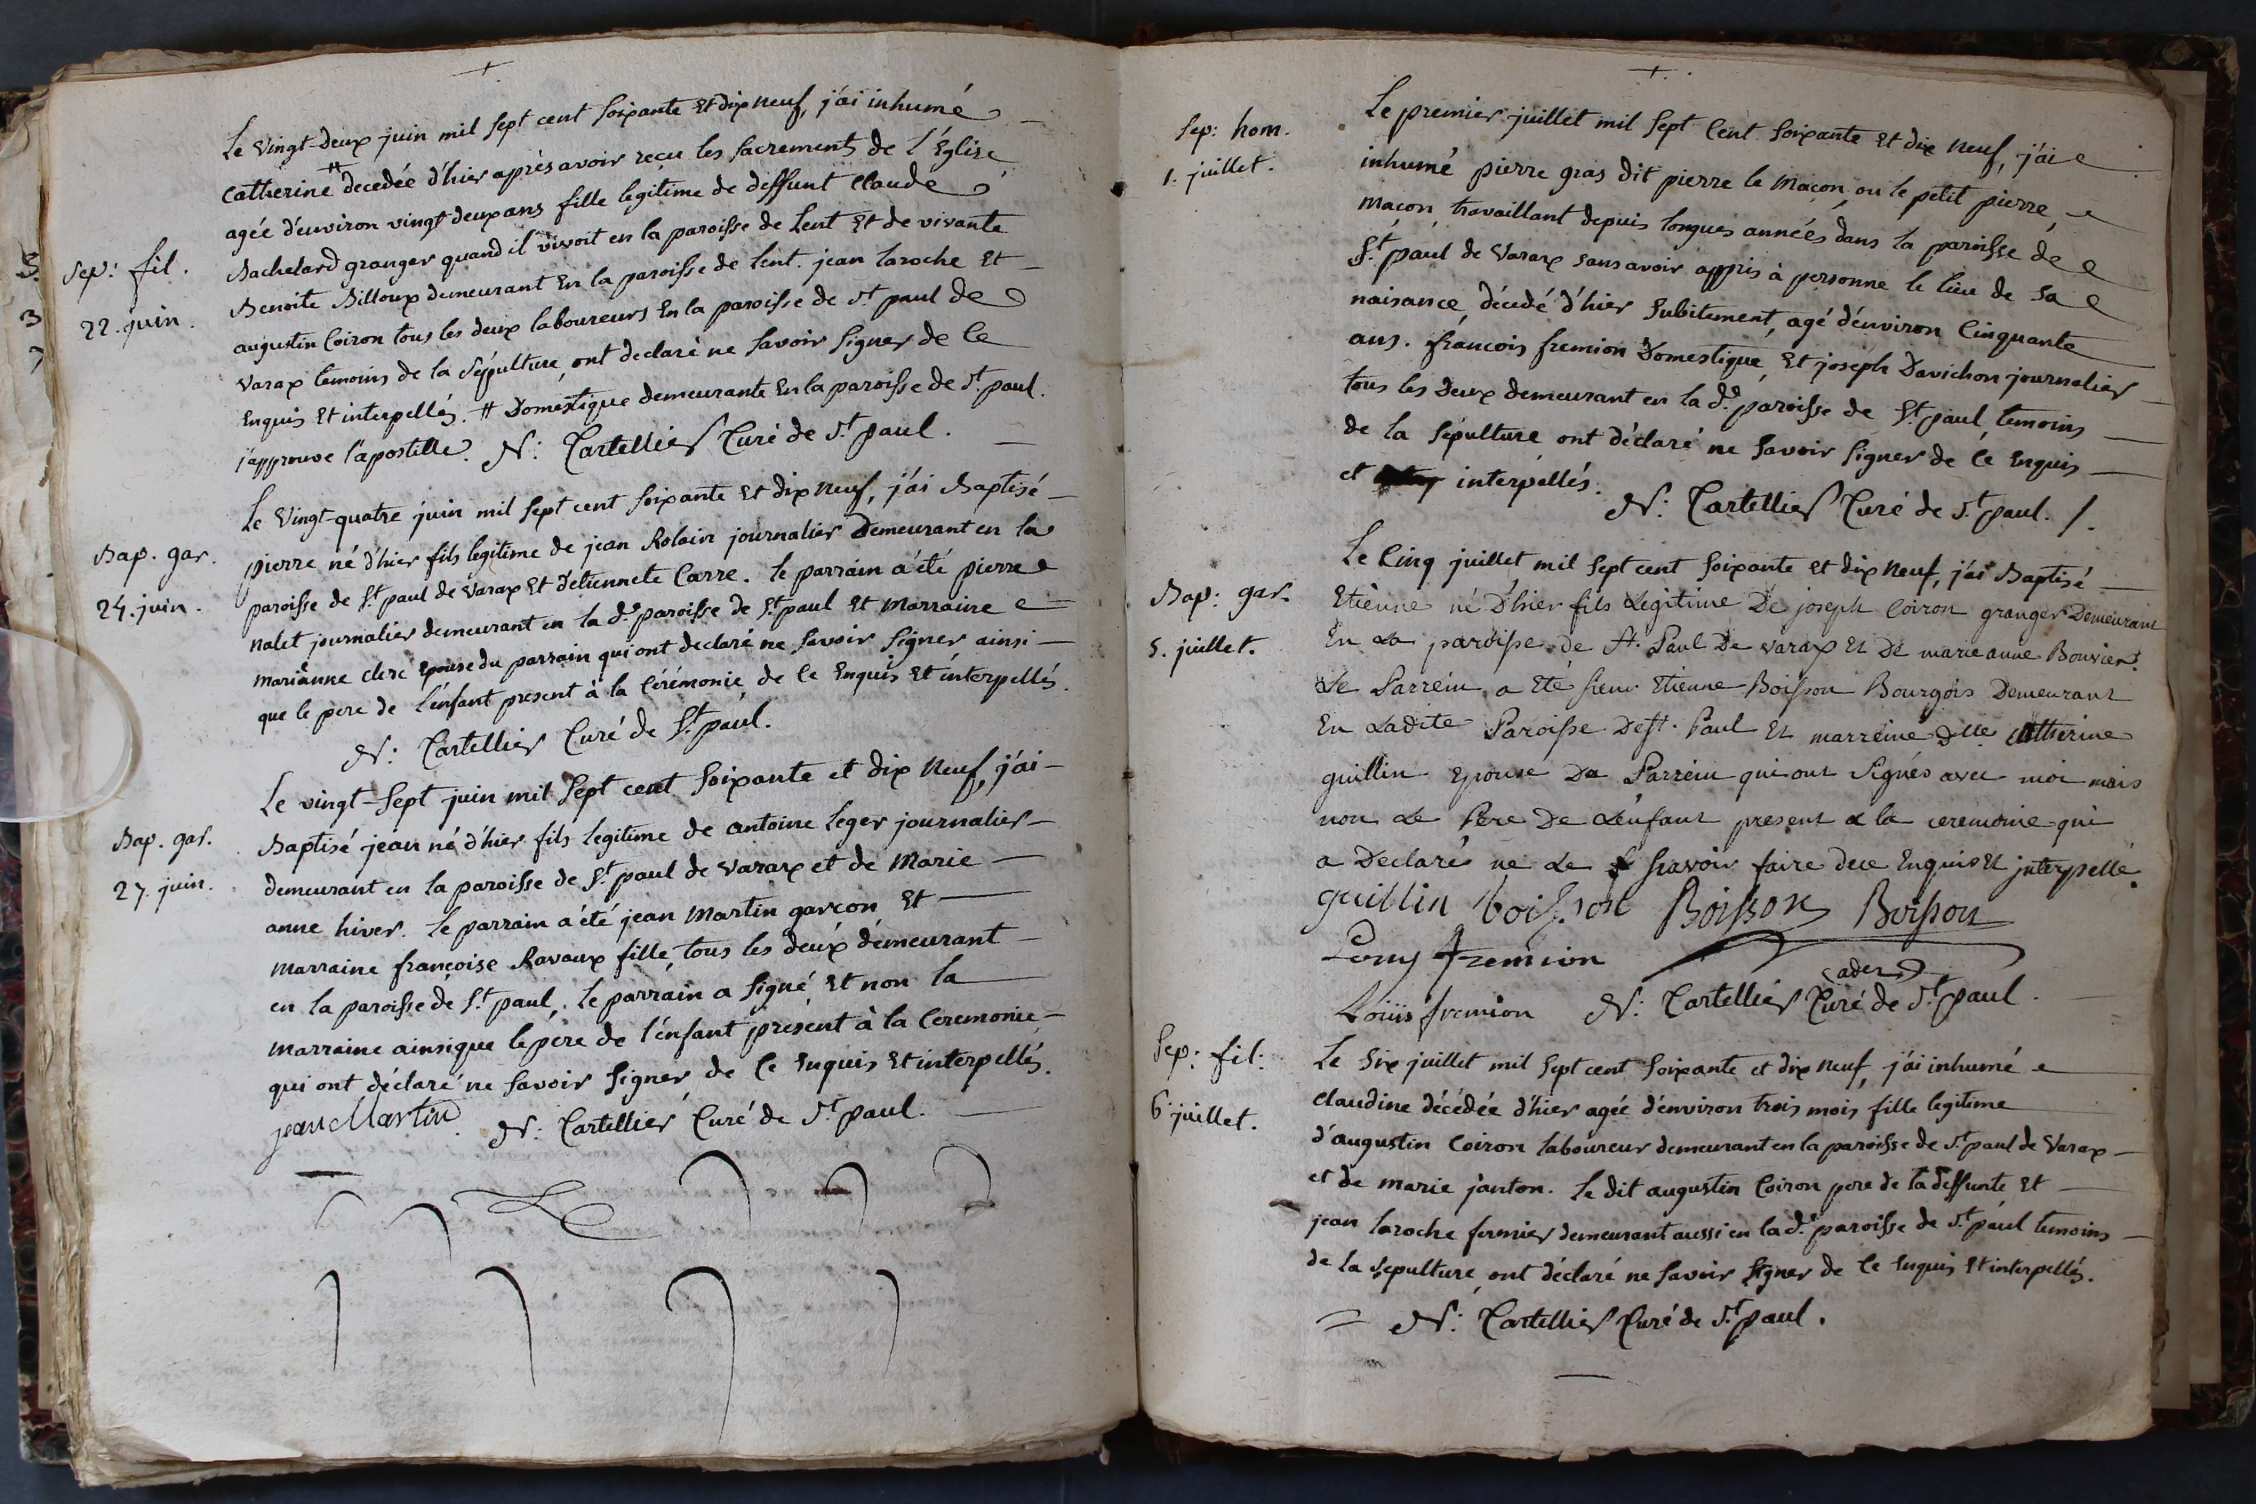 +
Le vingt-deux juin mil sept cent soixante et dix neuf, j'ai inhumé
catherine # decedée d'hier après avoir reçu les sacrements de l'Eglise
agée d'environ vingt deux ans fille legitime de deffunt claude
Bachelard granger quand il vivoit en la paroisse de Lent et de vivante
sep: fil.
22. juin.
Benoite Billoux demeurant en la paroisse de lent. jean laroche et
augustin Coiron tous les deux laboureurs en la paroisse de St. paul de
varax temoins de la sépulture, ont declaré ne savoir signer de ce
enquis et interpellés. # Domestique demeurante en la paroisse de St. paul.
j'approuve l'apostille. N: Cartellier Curé de St. paul.
Le vingt-quatre juin mil sept cent soixante et dix neuf, j'ai Baptisé
Bap. gar.
24. juin.
pierre né d'hier fils legitime de jean Rolain journalier demeurant en la
paroisse de St. paul de varax et d'etiennete Carre. le parrain a été pierre
nalet journalier demeurant en la de. paroisse de St. paul et marraine
marianne clerc epouse du parrain qui ont declaré ne savoir signer ainsi
que le pere de l'enfant present à la Cérémonie de ce enquis et interpellés.
N: Cartellier Curé de St. paul.
Le vingt-sept juin mil sept cent soixante et dix neuf, j'ai
Bap. gar.
27. juin.
Baptisé jean né d'hier fils legitime de antoine leger journalier
demeurant en la paroisse de St. paul de varax et de Marie
anne hiver. le parrain a été jean Martin garçon et
marraine françoise Ravaux fille, tous les deux demeurant
en la paroisse de St. paul, le parrain a signé et non la
marraine ainsique le pere de l'enfant présent à la Ceremonie
qui ont déclaré ne savoir signer de ce enquis et interpellés.
jean Martin N: Cartellier Curé de St. paul.
+
Sep: hom.
1. juillet.
Le premier juillet mil sept Cent soixante et dix neuf, j'ai
inhumé pierre gras dit pierre le maçon, ou le petit pierre,
maçon travaillant depuis longues années dans la paroisse de
St. paul de varax sans avoir appris à personne le lieu de sa
naisance, décedé d'hier subitement, agé d'environ Cinquante
ans. françois fremion Domestique, et joseph Davichon journalier
tous les deux demeurant en la de. paroisse de St. paul, temoins
de la sépulture ont déclaré ne savoir signer de ce enquis
et interpellés. N: Cartellier Curé de St. paul. /.
Le Cinq juillet mil sept cent soixante et dix neuf, j'ai Baptisé
Bap: gar.
5. juillet.
Etienne né d'hier fils Legitime De joseph Coiron granger Demeurant
En La paroisse de St. Paul De varax Et De marie anne Bouvier.
Le Parrein a Eté sieur Etienne Boisson Bourgois Demeurant
En Ladite Paroisse De St. Paul Et marreine Dlle Catherine
guillin Epouse Du Parrein qui ont signés avec moi mais
non Le Pere De L'enfant present a la ceremonie qui
a Declaré ne Le scavoir faire dece Enquis Et interpellé.
guillin boisson Boisson Boisson
fremion cadet
Louis fremion N: Cartellier Curé de St. paul.
Sep: fil:
6 juillet.
Le Six juillet mil sept cent soixante et dix neuf, j'ai inhumé
claudine décédée d'hier agée d'environ trois mois fille legitime
d'augustin Coiron laboureur demeurant en la paroisse de St. paul de varax
et de marie janton. Le dit augustin Coiron pere de la deffunte et
jean laroche fermier demeurant aussi en la de. paroisse de St. paul temoins
de la sepulture ont déclaré ne savoir signer de ce enquis et interpellés.
N: Cartellier Curé de St. paul.